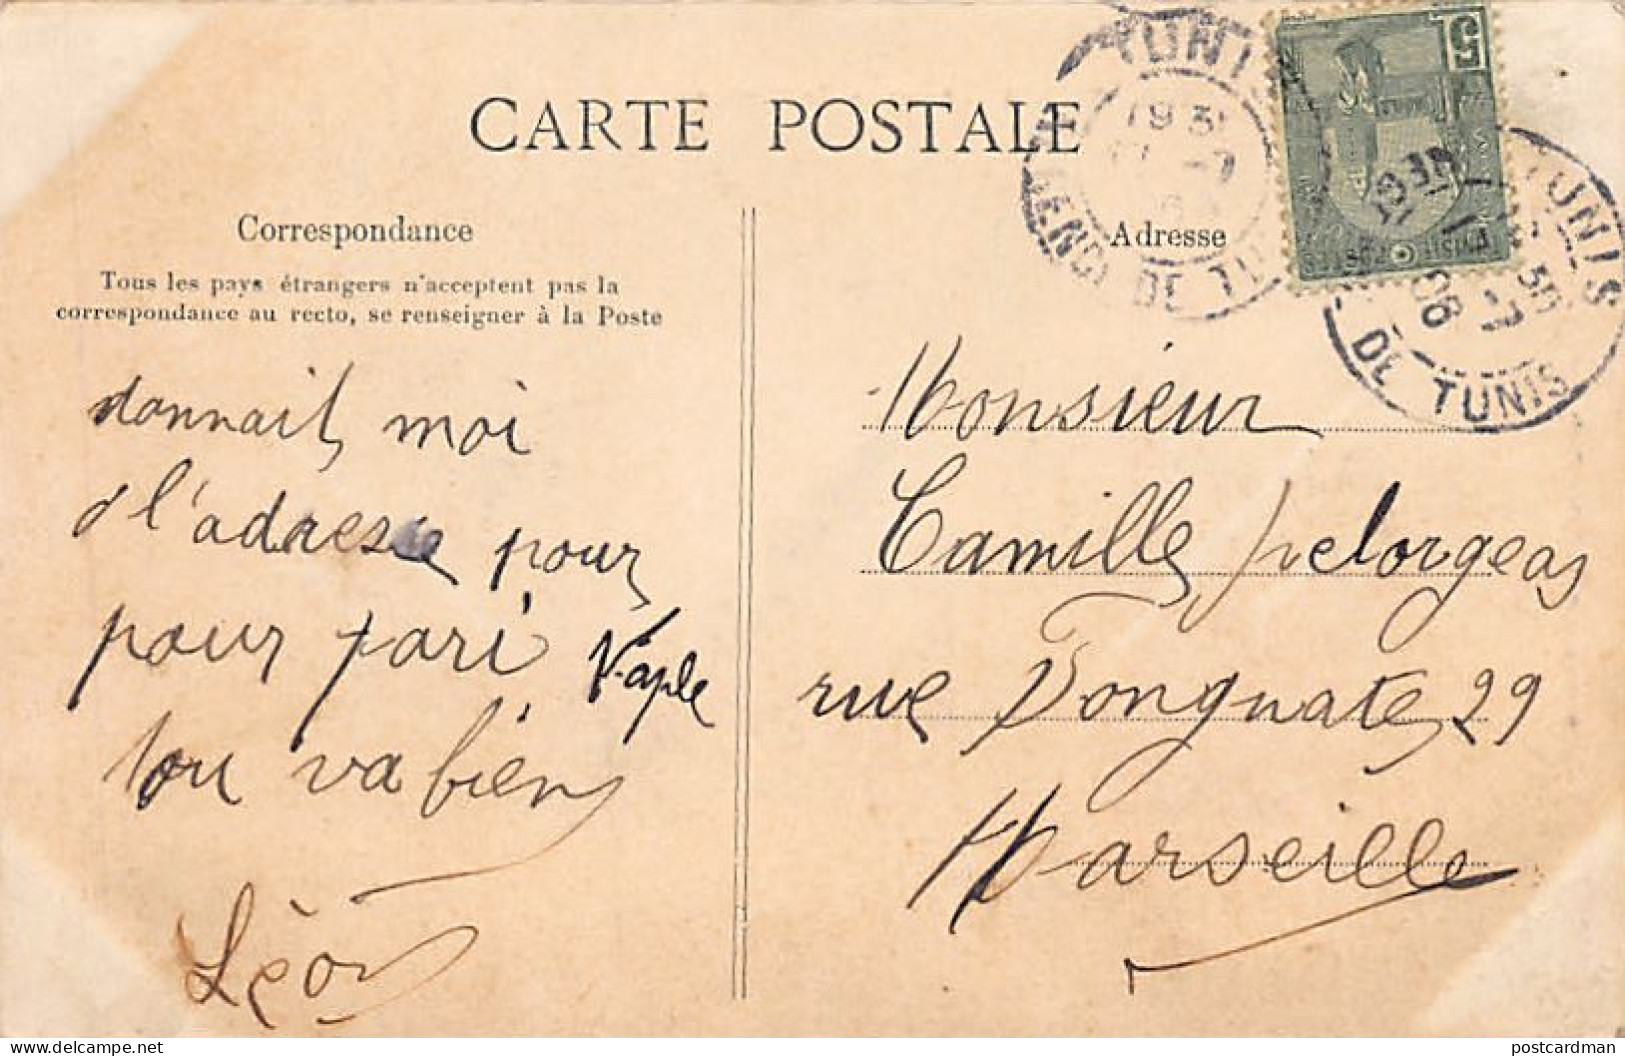 CARTE POSTALE
Correspondance
Tous les pays étrangers n'acceptent pas la
correspondance au recto, se renseigner à la Poste
donnait moi
l'adresse pour
pour pari Naple
tou va bien
Lèon
Adresse
Monsieur
Camille pelorgeas
rue Tongnate 29
Marseille
TUNIS
19 30
DE TU
5
TUNIS
08
DE TUNIS
postcardman